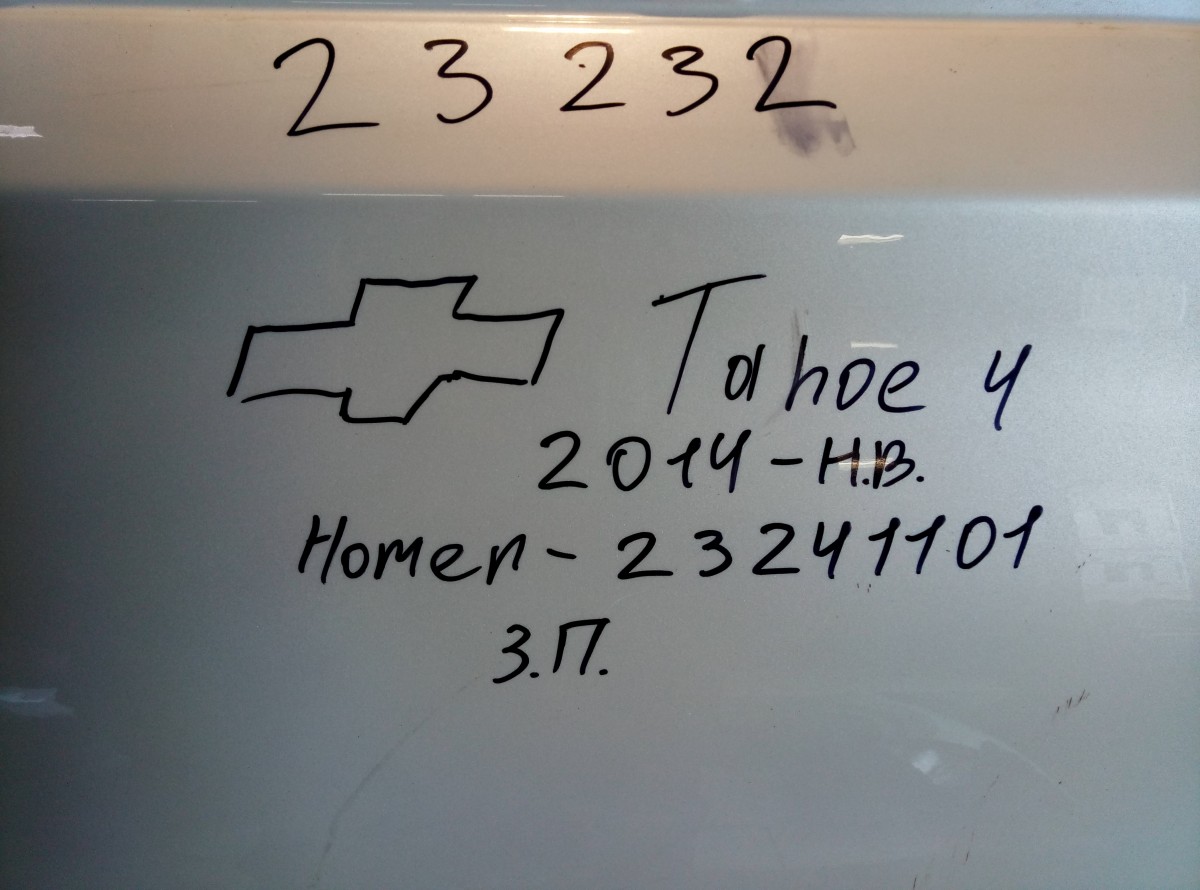 23232
Tahoe 4
2014-Н.В.
Номер-23241101
З.П.